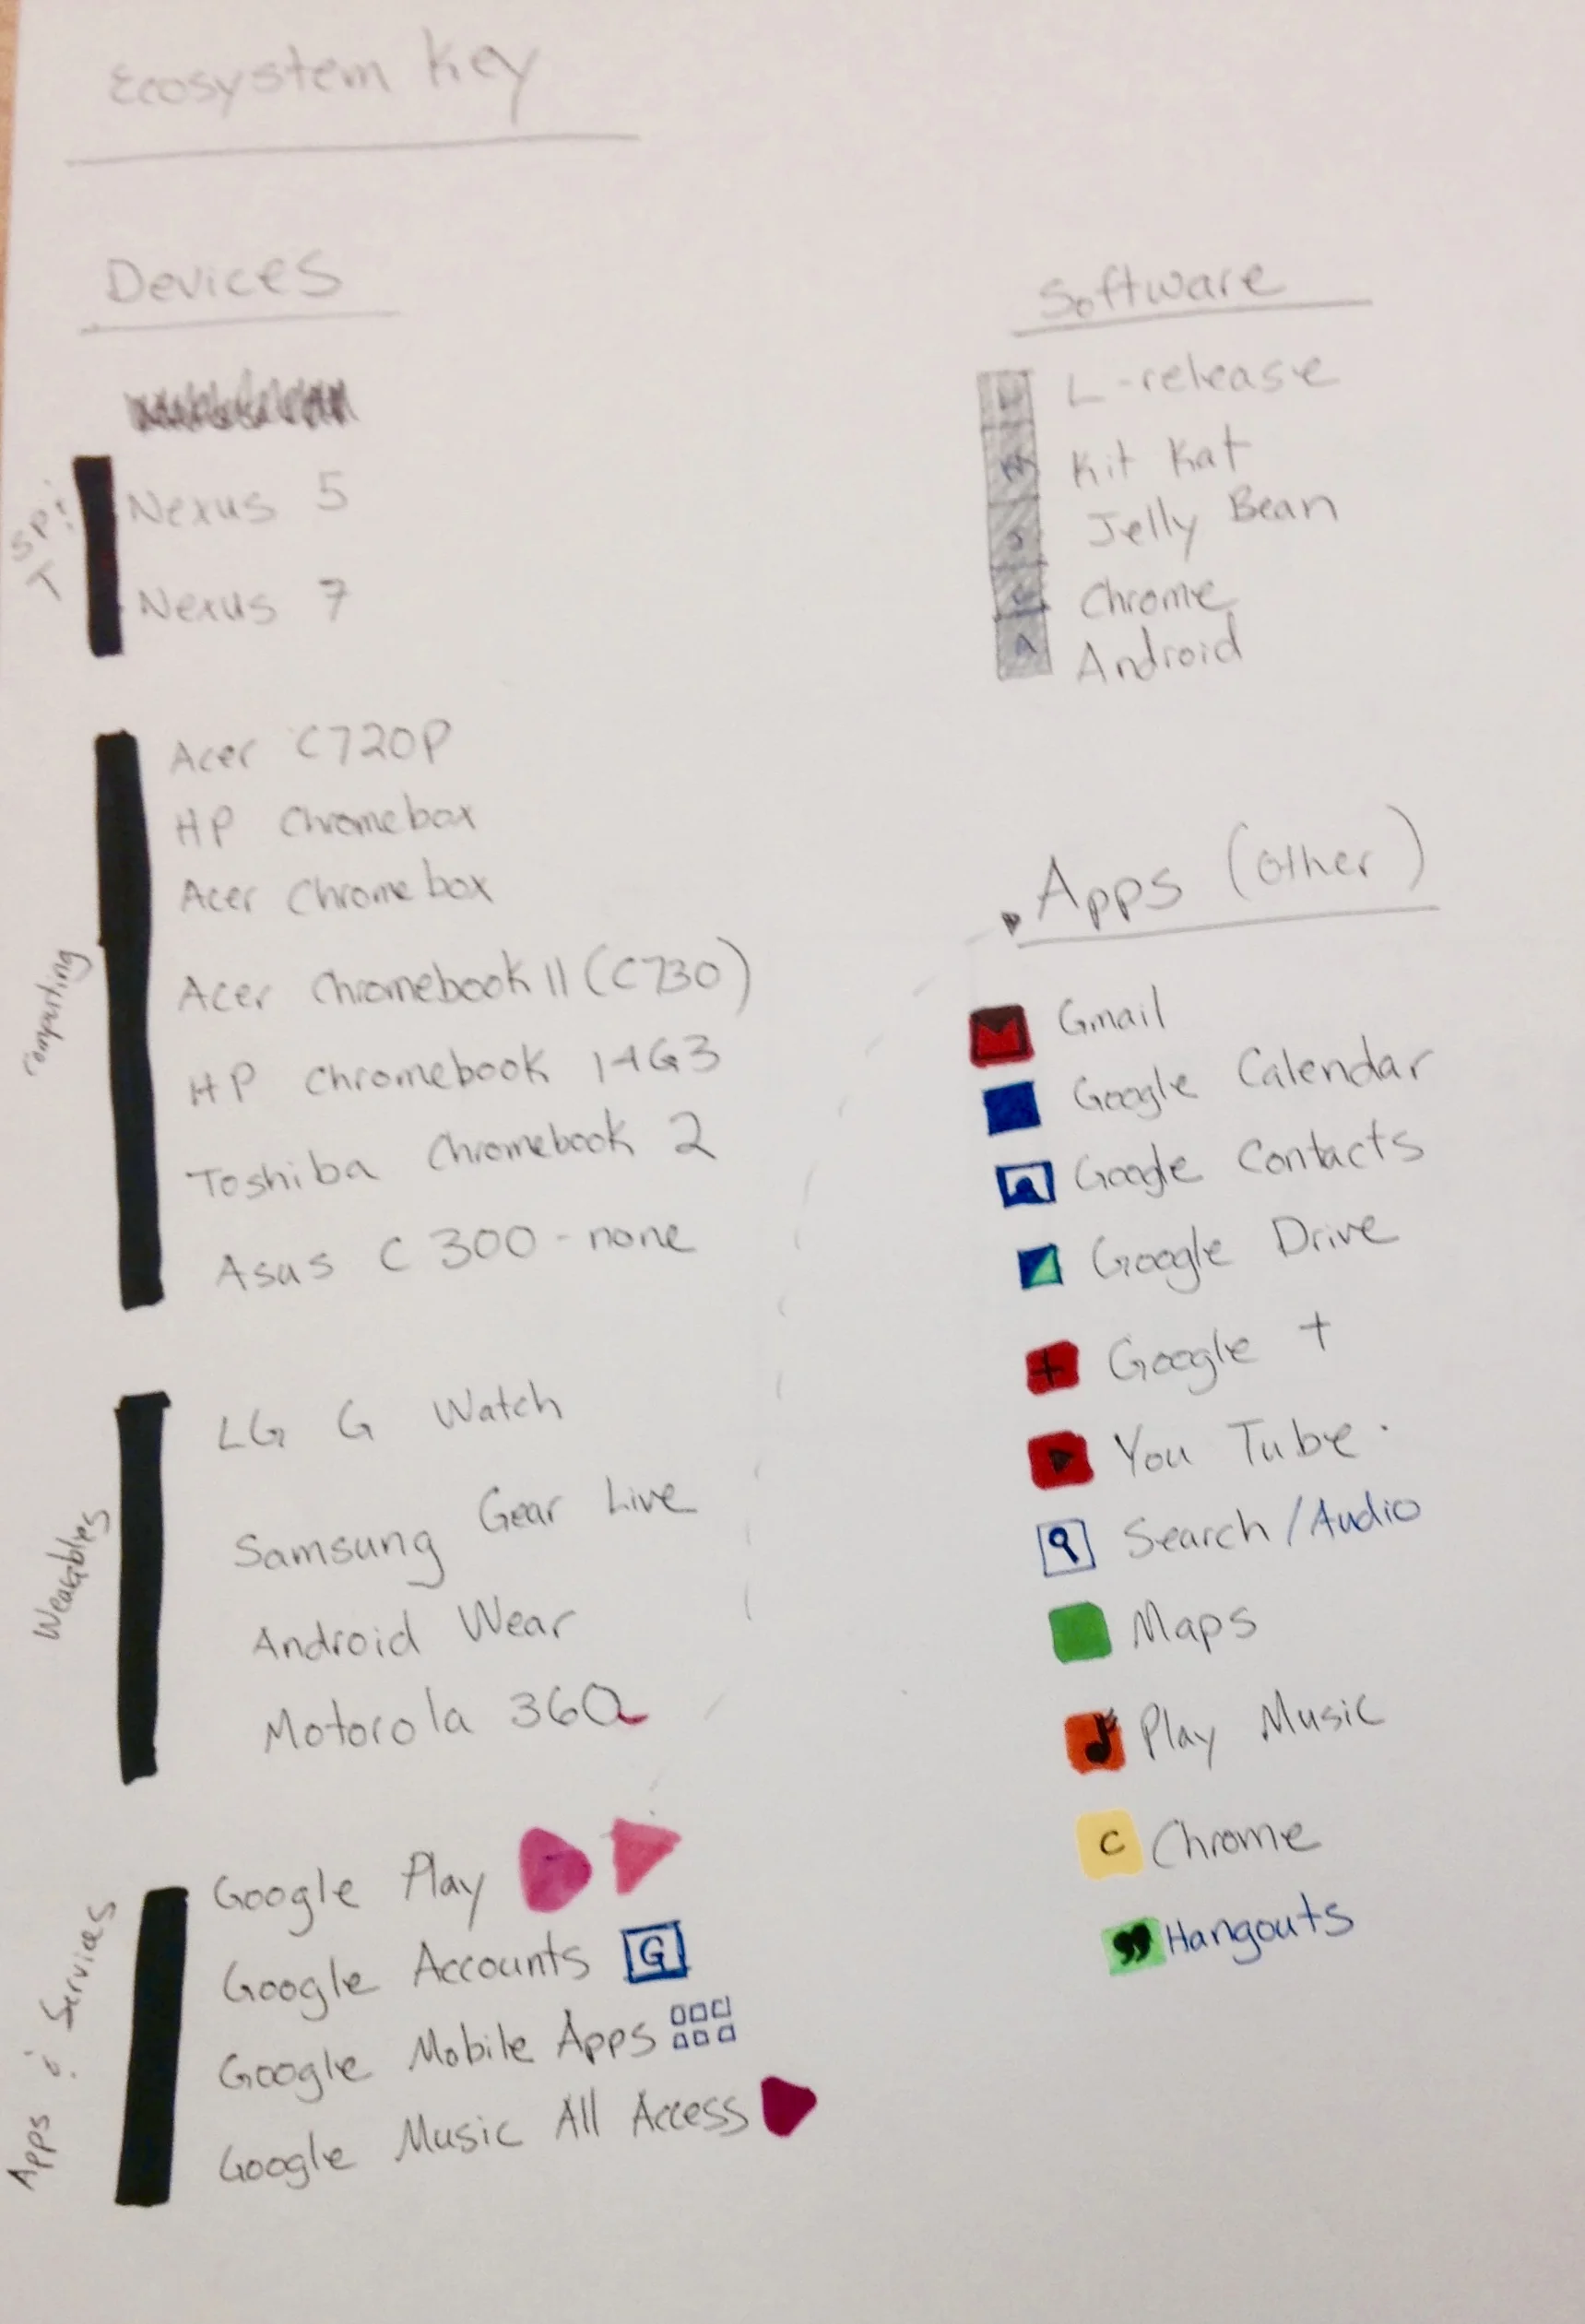 Ecosystem Key
Devices
SP &
T
Nexus 5
Nexus 7
Computing
Acer C720P
HP Chromebox
Acer Chromebox
Acer Chromebook 11 (C730)
HP Chromebook 14G3
Toshiba Chromebook 2
Asus C300 - none
Wearables
LG G Watch
Samsung Gear Live
Android Wear
Motorola 360
Apps & Services
Google Play
Google Accounts G
Google Mobile Apps
Google Music All Access
Software
L L-release
K Kit Kat
J Jelly Bean
C Chrome
A Android
Apps (other)
M Gmail
Google Calendar
Google Contacts
Google Drive
+ Google +
You Tube
Search/Audio
Maps
Play Music
C Chrome
Hangouts